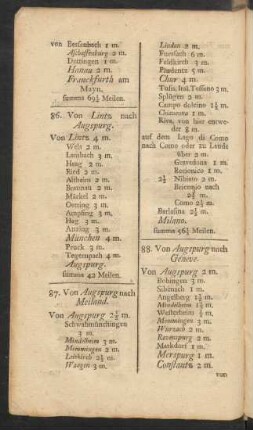 von Bessenbach 1 m.
Aschaffenburg 2 m.
Dettingen 1 m.
Hanau 2 m.
Franckfurth am
Mayn.
summa 69½ Meilen.
86. Von Lintz nach
Augspurg.
Von Lintz 4 m.
Wels 2 m.
Lambach 3 m.
Haag 2 m.
Ried 2 m.
Altheim 2 m.
Braunau 2 m.
Märckel 2 m.
Oetting 3 m.
Ampfing 3 m.
Hag 3 m.
Anzing 3 m.
München 4 m.
Pruck 3 m.
Augspurg.
summa 42 Meilen.
87. Von Augspurg nach
Meiland.
Von Augspurg 2½ m.
Schwabmünchingen
3 m.
Mindelheim 3 m.
Memmingen 2 m.
Leutkirch 2½ m.
Wangen 3 m.
Lindau 2 m.
Fussach 6 m.
Feldkirch 3 m.
Chur 4 m.
Splügen 2 m.
Campo dolcino 1½ m.
Riva, von hier entwe-
der 8 m.
auf dem Lago di Como
nach Como oder zu Lande
über 2 m.
1 m.
1 m.
2 m.
2½ m.
Como 2½ m.
Barlasina 2½ m.
Milano.
summa 56½ Meilen.
88. Von Augspurg nach
Geneve.
Von Augspurg 2 m.
Bobingen 3 m.
Angelberg 1½ m.
Mindelheim 1½ m.
Westerheim ½ m.
Memmingen 3 m.
Wurzach 2 m.
Ravenspurg 2 m.
Marckdorf 1 m.
Merspurg 1 m.
Constantz 2 m.
von